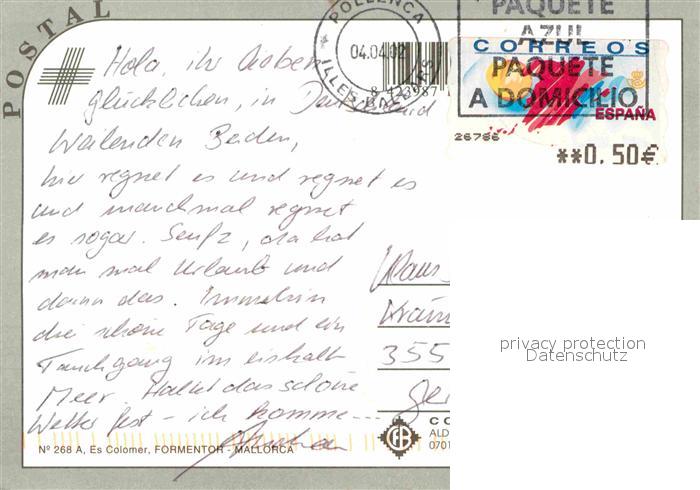 POSTAL
POLLENCA
04.04.02
ILLES BALEARS
8 423987
PAQUETE
AZUL
PAQUETE
A DOMICILIO
CORREOS
ESPAÑA
26766
**0,50€
Hola, ihr lieben
glücklichen, in Deutschland
weilenden Beiden,
hier regnet es und regnet es
und manchmal regnet
es sogar. Seufz, da hat
man mal Urlaub und
dann das. Immerhin
drei schöne Tage und ein
Tauchgang im eiskalten
Meer. Haltet das schöne
Wetter fest – ich komme...
Klaus
355
Ger
privacy protection
Datenschutz
CO
ALD
0701
Nº 268 A, Es Colomer, FORMENTOR - MALLORCA